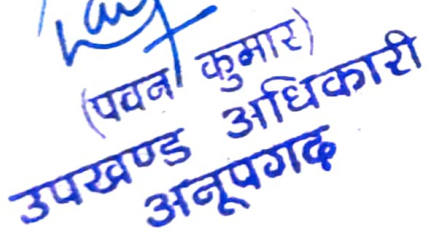 (पवन कुमार)
उपखण्ड अधिकारी
अनूपगढ